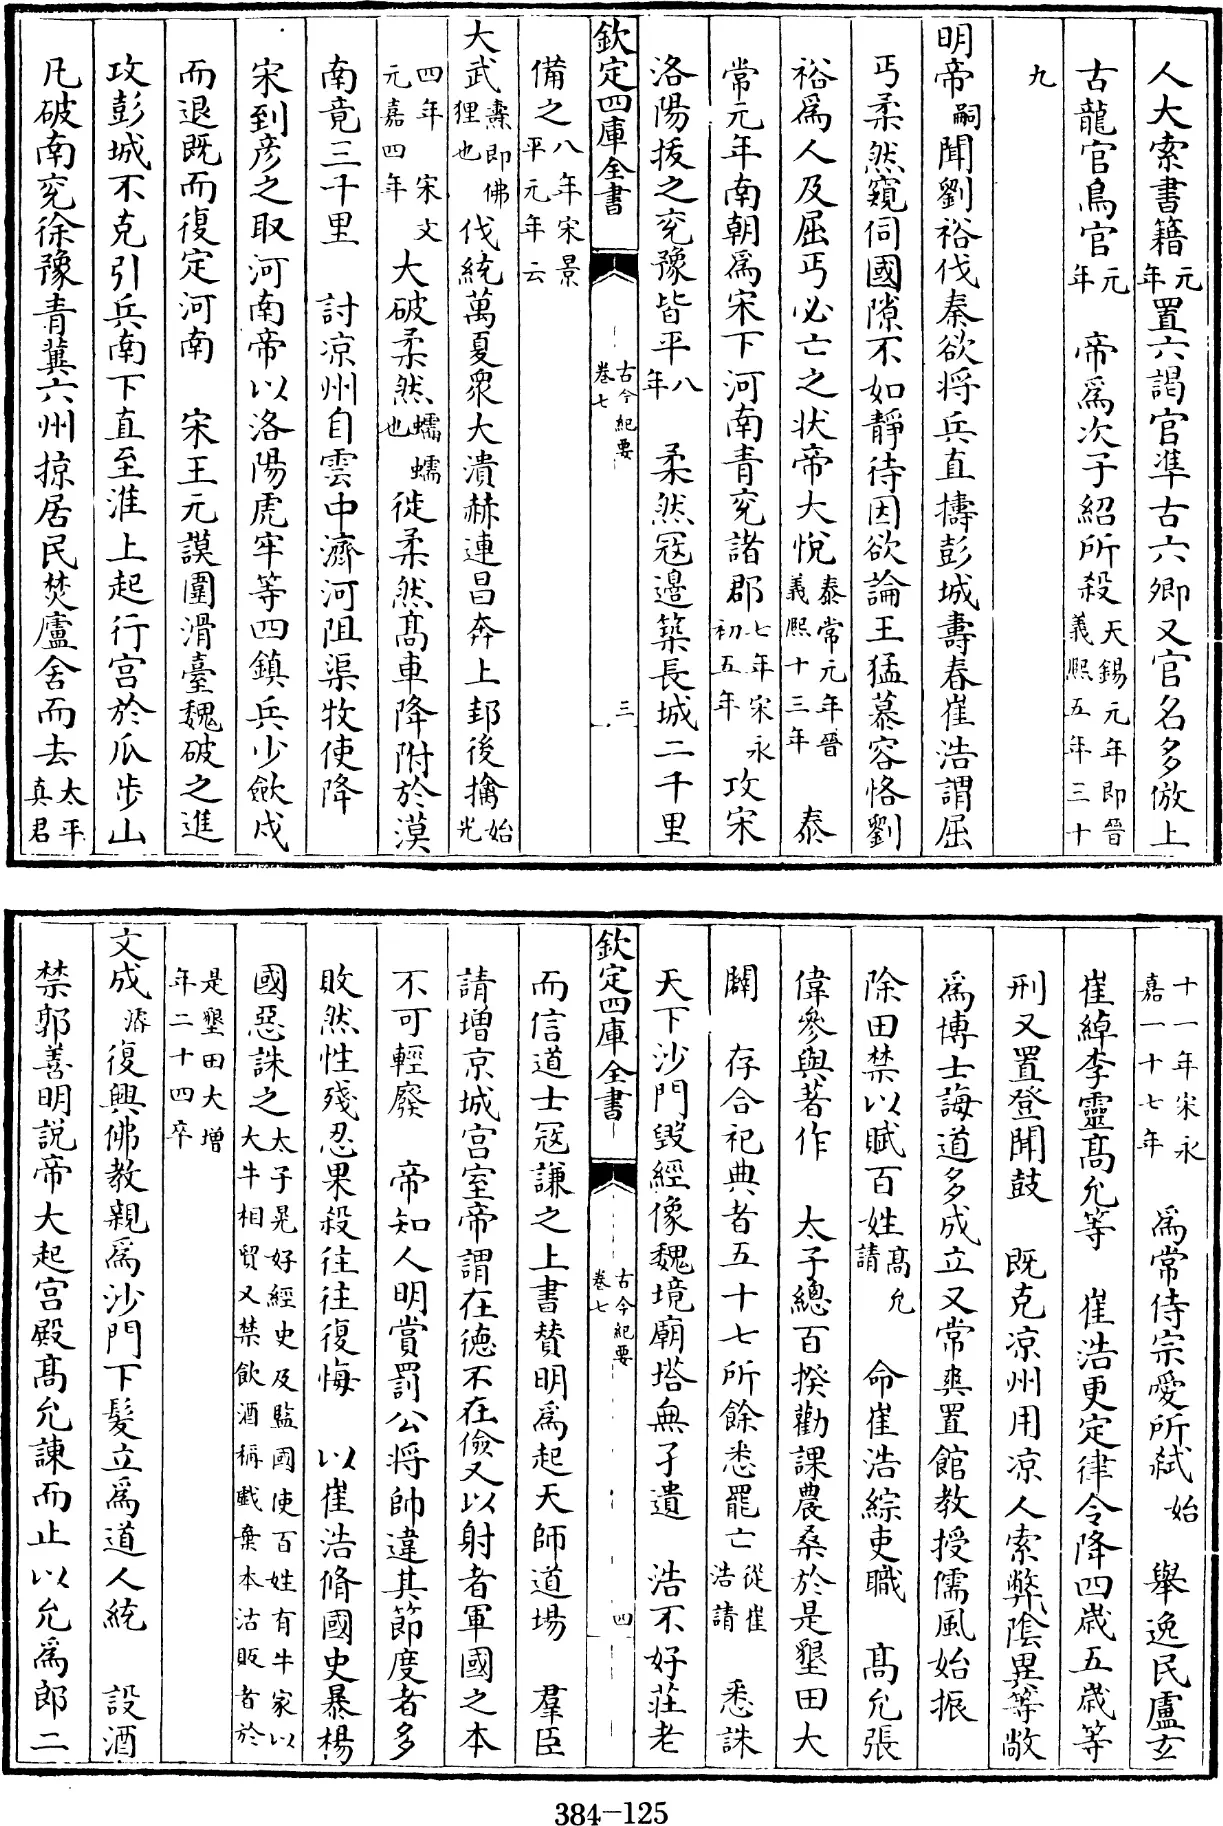 人大索書籍元年置六謁官凖古六卿又官名多倣上
古龍官鳥官元年　帝爲次子紹所殺天錫元年即晉義熙五年三十
九
明帝嗣聞劉裕伐秦欲将兵直擣彭城壽春崔浩謂屈
丐柔然窺伺國隙不如靜待因欲論王猛慕容恪劉
裕爲人及屈丐必亡之状帝大悅泰常元年晉義熙十三年　泰
常元年南朝爲宋下河南青兖諸郡七年宋永初五年攻宋
洛陽拔之兖豫皆平八年　柔然冦邊築長城二千里
欽定四庫全書　古今紀要卷七　三
備之八年宋景平元年云
大武燾即佛狸也伐統萬夏衆大潰赫連昌奔上邽後擒始光
四年宋文元嘉四年大破柔然蠕蠕也徙柔然髙車降附於漠
南竟三千里　討凉州自雲中濟河阻渠牧使降
宋到彦之取河南帝以洛陽虎牢等四鎮兵少歛戍
而退既而復定河南　宋王元謨圍滑臺魏破之進
攻彭城不克引兵南下直至淮上起行宫於瓜步山
凡破南兖徐豫青冀六州掠居民焚廬舍而去太平真君
十一年宋永嘉一十七年　爲常侍宗愛所弑始　舉逸民盧玄
崔綽李靈髙允等　崔浩更定律令降四歲五歲等
刑又置登聞鼓　既克凉州用凉人索弊陰異等敞
爲博士誨道多成立又常爽置館教授儒風始振
除田禁以賦百姓髙允請　命崔浩綜吏職　髙允張
偉參與著作　太子總百揆勸課農桑於是墾田大
闢　存合祀典者五十七所餘悉罷亡從崔浩請　悉誅
天下沙門毀經像魏境廟塔無孑遺　浩不好莊老
欽定四庫全書　古今紀要卷七　四
而信道士冦謙之上書賛明爲起天師道場　羣臣
請增京城宫室帝謂在德不在儉又以射者軍國之本
不可輕廢　帝知人明賞罰公將帥違其節度者多
敗然性殘忍果殺往往復悔　以崔浩脩國史暴楊
國惡誅之太子晃好經史及監國使百姓有牛家以大牛相貿又禁飲酒稱戯棄本沽販者於
是墾田大增年二十四卒
文成濬復興佛教親爲沙門下髮立爲道人統　設酒
禁郭善明説帝大起宫殿髙允諫而止以允爲郎二
384-125